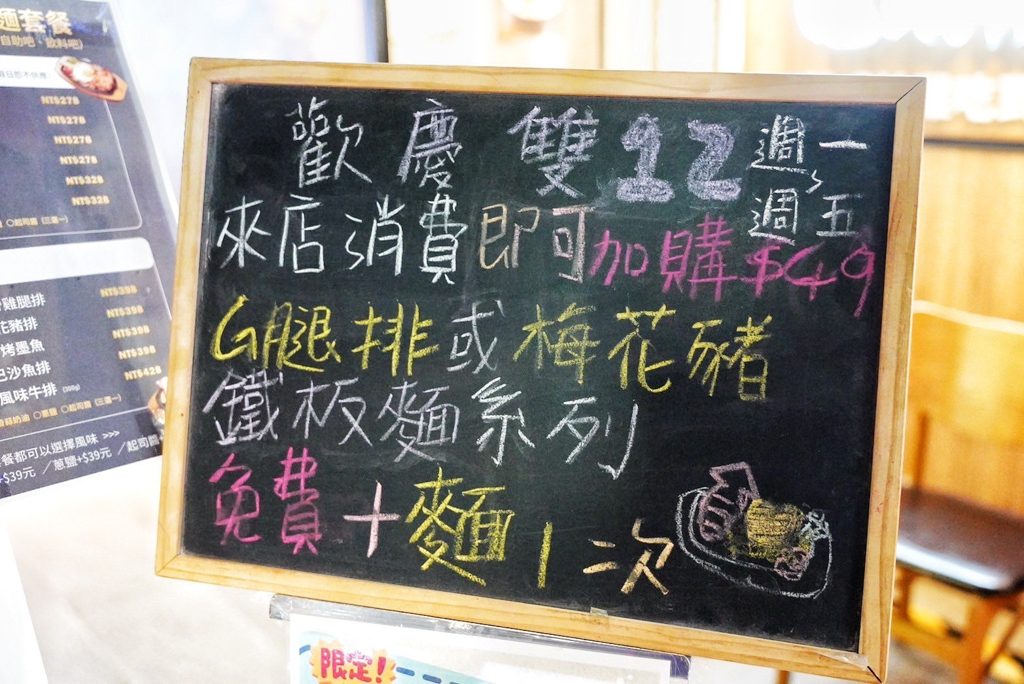 麵套餐
自助吧、飲料吧)
NT$278
NT$278
NT$278
NT$278
NT$328
NT$328
○起司醬 (三選一)
NT$398
雞腿排
NT$398
花豬排
NT$398
烤墨魚
NT$398
巴沙魚排
NT$428
風味牛排
○蔥鹽 ○起司醬 (三選一)
套餐都可以選擇風味 >>>
+$39元 /蔥鹽+$39元 /起司醬
歡慶雙12 週一、週五
來店消費即可加購$49
G腿排或梅花豬
鐵板麵系列
免費+麵1二次
限定!